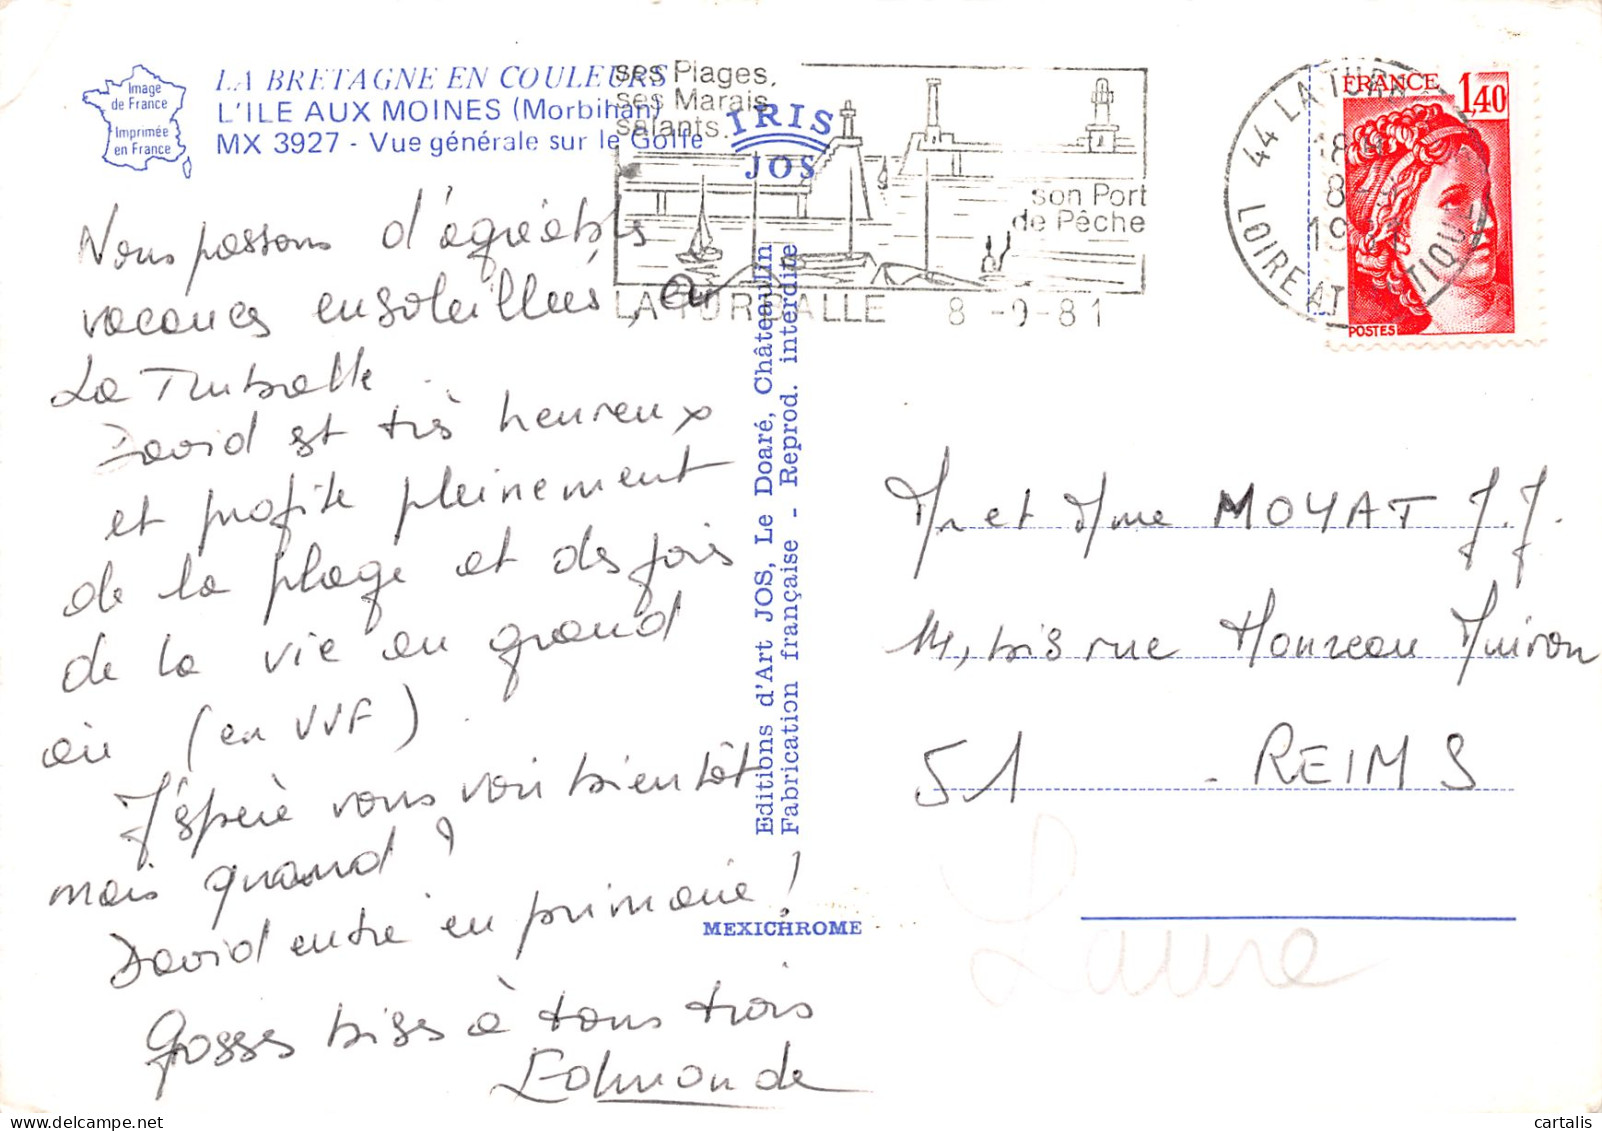 Image
de France
Imprimée
en France
LA BRETAGNE EN COULEURS
L'ILE AUX MOINES (Morbihan)
MX 3927 - Vue générale sur le Golfe
IRIS
JOS
ses Plages,
ses Marais
salants.
son Port
de Pêche
LA TURBALLE 8 -9-81
44 LA TURB
18H
8-9
19
LOIRE ATL TIQUE
FRANCE
1,40
POSTES
Nous passons d'agréables
vacances ensoleillées, à
La Turballe.
David est très heureux
et profite pleinement
de la plage et des fois
de la vie au grand
air (en VVF).
J'espère vous voir bientôt
mais quand ?
David entre en primaire !
Grosses bises à tous trois
Edmonde
Editions d'Art JOS, Le Doaré, Châteaulin
Fabrication française - Reprod. interdite
MEXICHROME
Mr et Mme MOYAT J.J.
14, bis rue Houzeau Muiron
51 - REIMS
Laure
Delcampe.net
cartalis